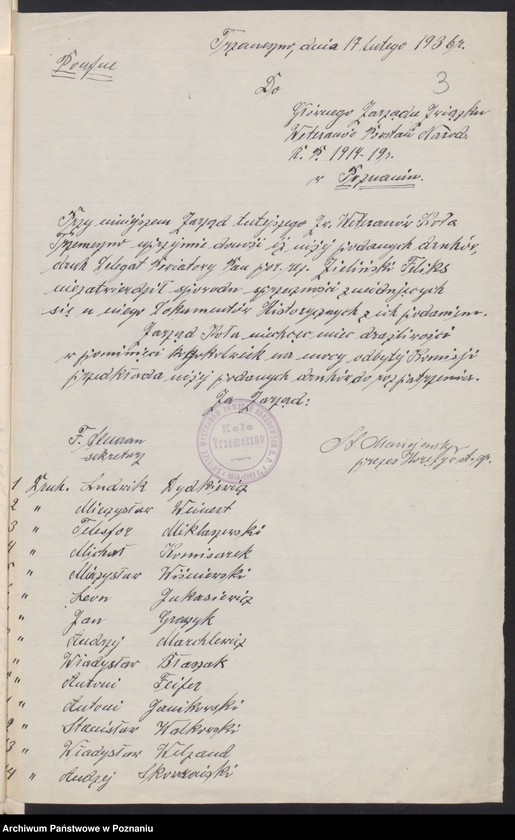 Trzemeszno, dnia 17 lutego 1936 r.
Poufne
3
Do
Głównego Zarządu Związku
Weteranów Powstań Narod.
R. P. 1914-19 r.
w Poznaniu.
Przy niniejszem Zarząd tutejszego Zw. Weteranów Koła
Trzemeszno uprzejmie donosi iż niżej podanych druhów,
druh Delegat Powiatowy Pan por. rez. Zieliński Feliks
niezatwierdził sprzeczności znajdujących
się u niego Dokumentów Historycznych z ich podaniem.
Zarząd Koła niechcąc mieć drażliwości
w pominięciu kogokolwiek na mocy odbytej Komisji
przedkłada niżej podanych druhów do rozpatrzenia.
Za Zarząd:
Koło
Trzemeszno
F.
sekretarz
St.
prezes
1 Druh. Ludwik Dydkiewicz
2 " Mieczysław Weinert
3 " Telesfor Miklaszewski
4 " Michał Komisarek
5 " Mieczysław Wiśniewski
" Leon Łukasiewicz
" Jan
" Andrzej Marchlewicz
" Władysław Błaszak
" Antoni Feifer
1 " Antoni Janikowski
2 " Stanisław Walkowski
13 " Władysław Welzand
14 " Andrzej
Archiwum Państwowe w Poznaniu